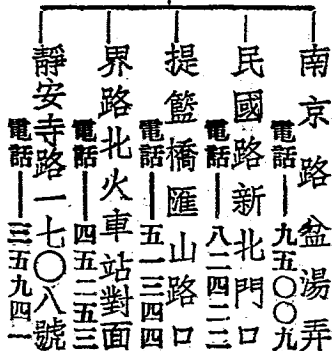 南京路盆湯弄
電話——九五〇〇九
民國路新北門口
電話——八二四二二
提籃橋匯山路口
電話——五一三四四
界路北火車站對面
電話——四五二五三
靜安寺路一七〇八號
電話——三五九四一